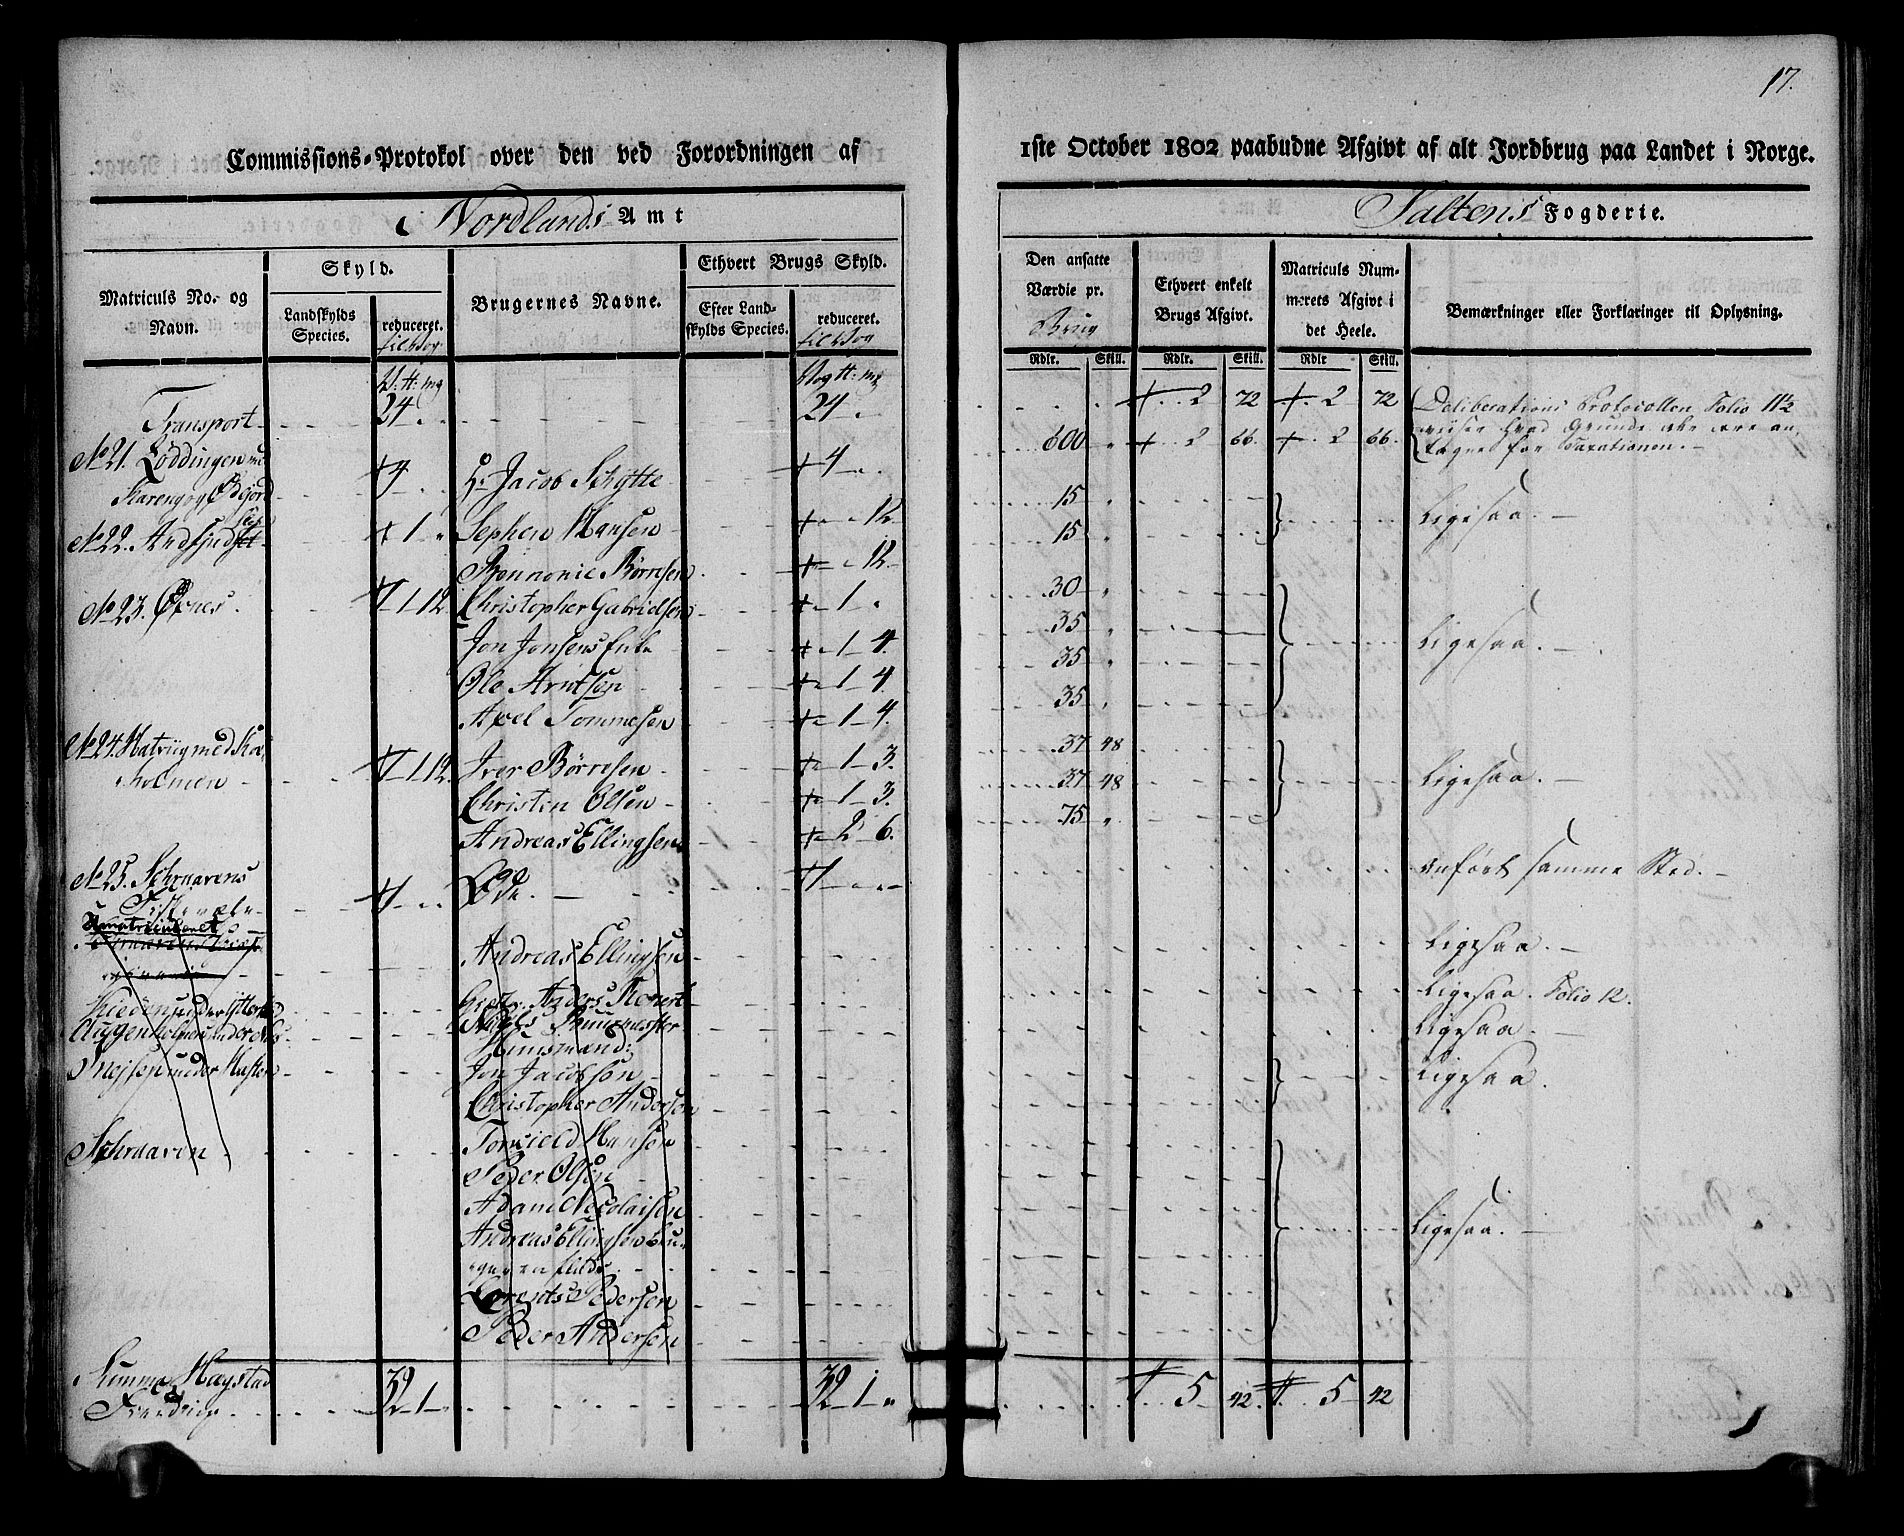 17.
Commissions-Protokol over den ved Forordningen af 1ste October 1802 paabudne Afgivt af alt Jordbrug paa Landet i Norge.
Nordlands Amt
Saltens Fogderie.
Matriculs No. og Navn.
Skyld.
Landskylds Species.
reduceret.
Brugernes Navne.
Ethvert Brugs Skyld.
Efter Landskylds Species.
reduceret.
Den ansatte Værdie pr. Brug
Rdlr. Skill.
Ethvert enkelt Brugs Afgivt.
Rdlr. Skill.
Matriculs Nummerets Afgivt i det Heele.
Rdlr Skill.
Bemærkninger eller Forklaringer til Oplysning.
Transport 24 24 2 72 2 72 Deliberations Protocollen Folio 11½
No 21. Løddingen 4 Hr Jacob Schytte 4 600 2 66. 2 66.
No 22. 1 Sephen Hansen 12 15 Ligesaa.
Børresen 12 15
No 23. Øxnes 1 12 Christopher Gabrielsen 1 30
Jon Jonsens Enke 1 4. 35 Ligesaa.
Ole Arntsen 1 4 35
Axel Tommesen 1 4. 35
No 24. 1 12. Iver Børresen 1 3. 37 48
holmen Christen Olsen 1 3. 37 48 Ligesaa.
Andreas Ellingsen 2 6. 75
No 25. Schraavens Øde anført samme Sted.
Fiskevær
Umatriculeret
Andreas Ellingsen Ligesaa.
Anders Ligesaa. Folio 12.
Ligesaa.
Huusmænd:
Jon Jacobsen Ligesaa.
Christopher Andersen
Schraaven Hansen
Peder Olsen
Adam Nicolaisen
Andreas Ellingsen Ligesaa.
Lorents Pedersen
Peder Andersen
Summa 32 1 32 1 5 42 5 42